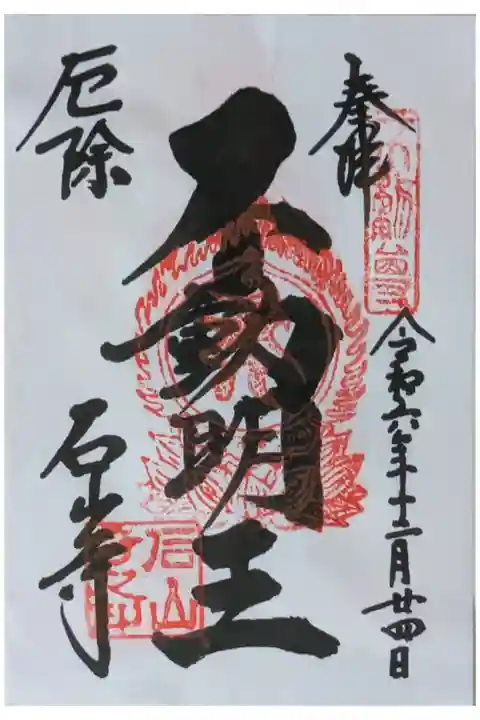 奉拝
令和六年十二月廿四日
不動明王
厄除
石山寺